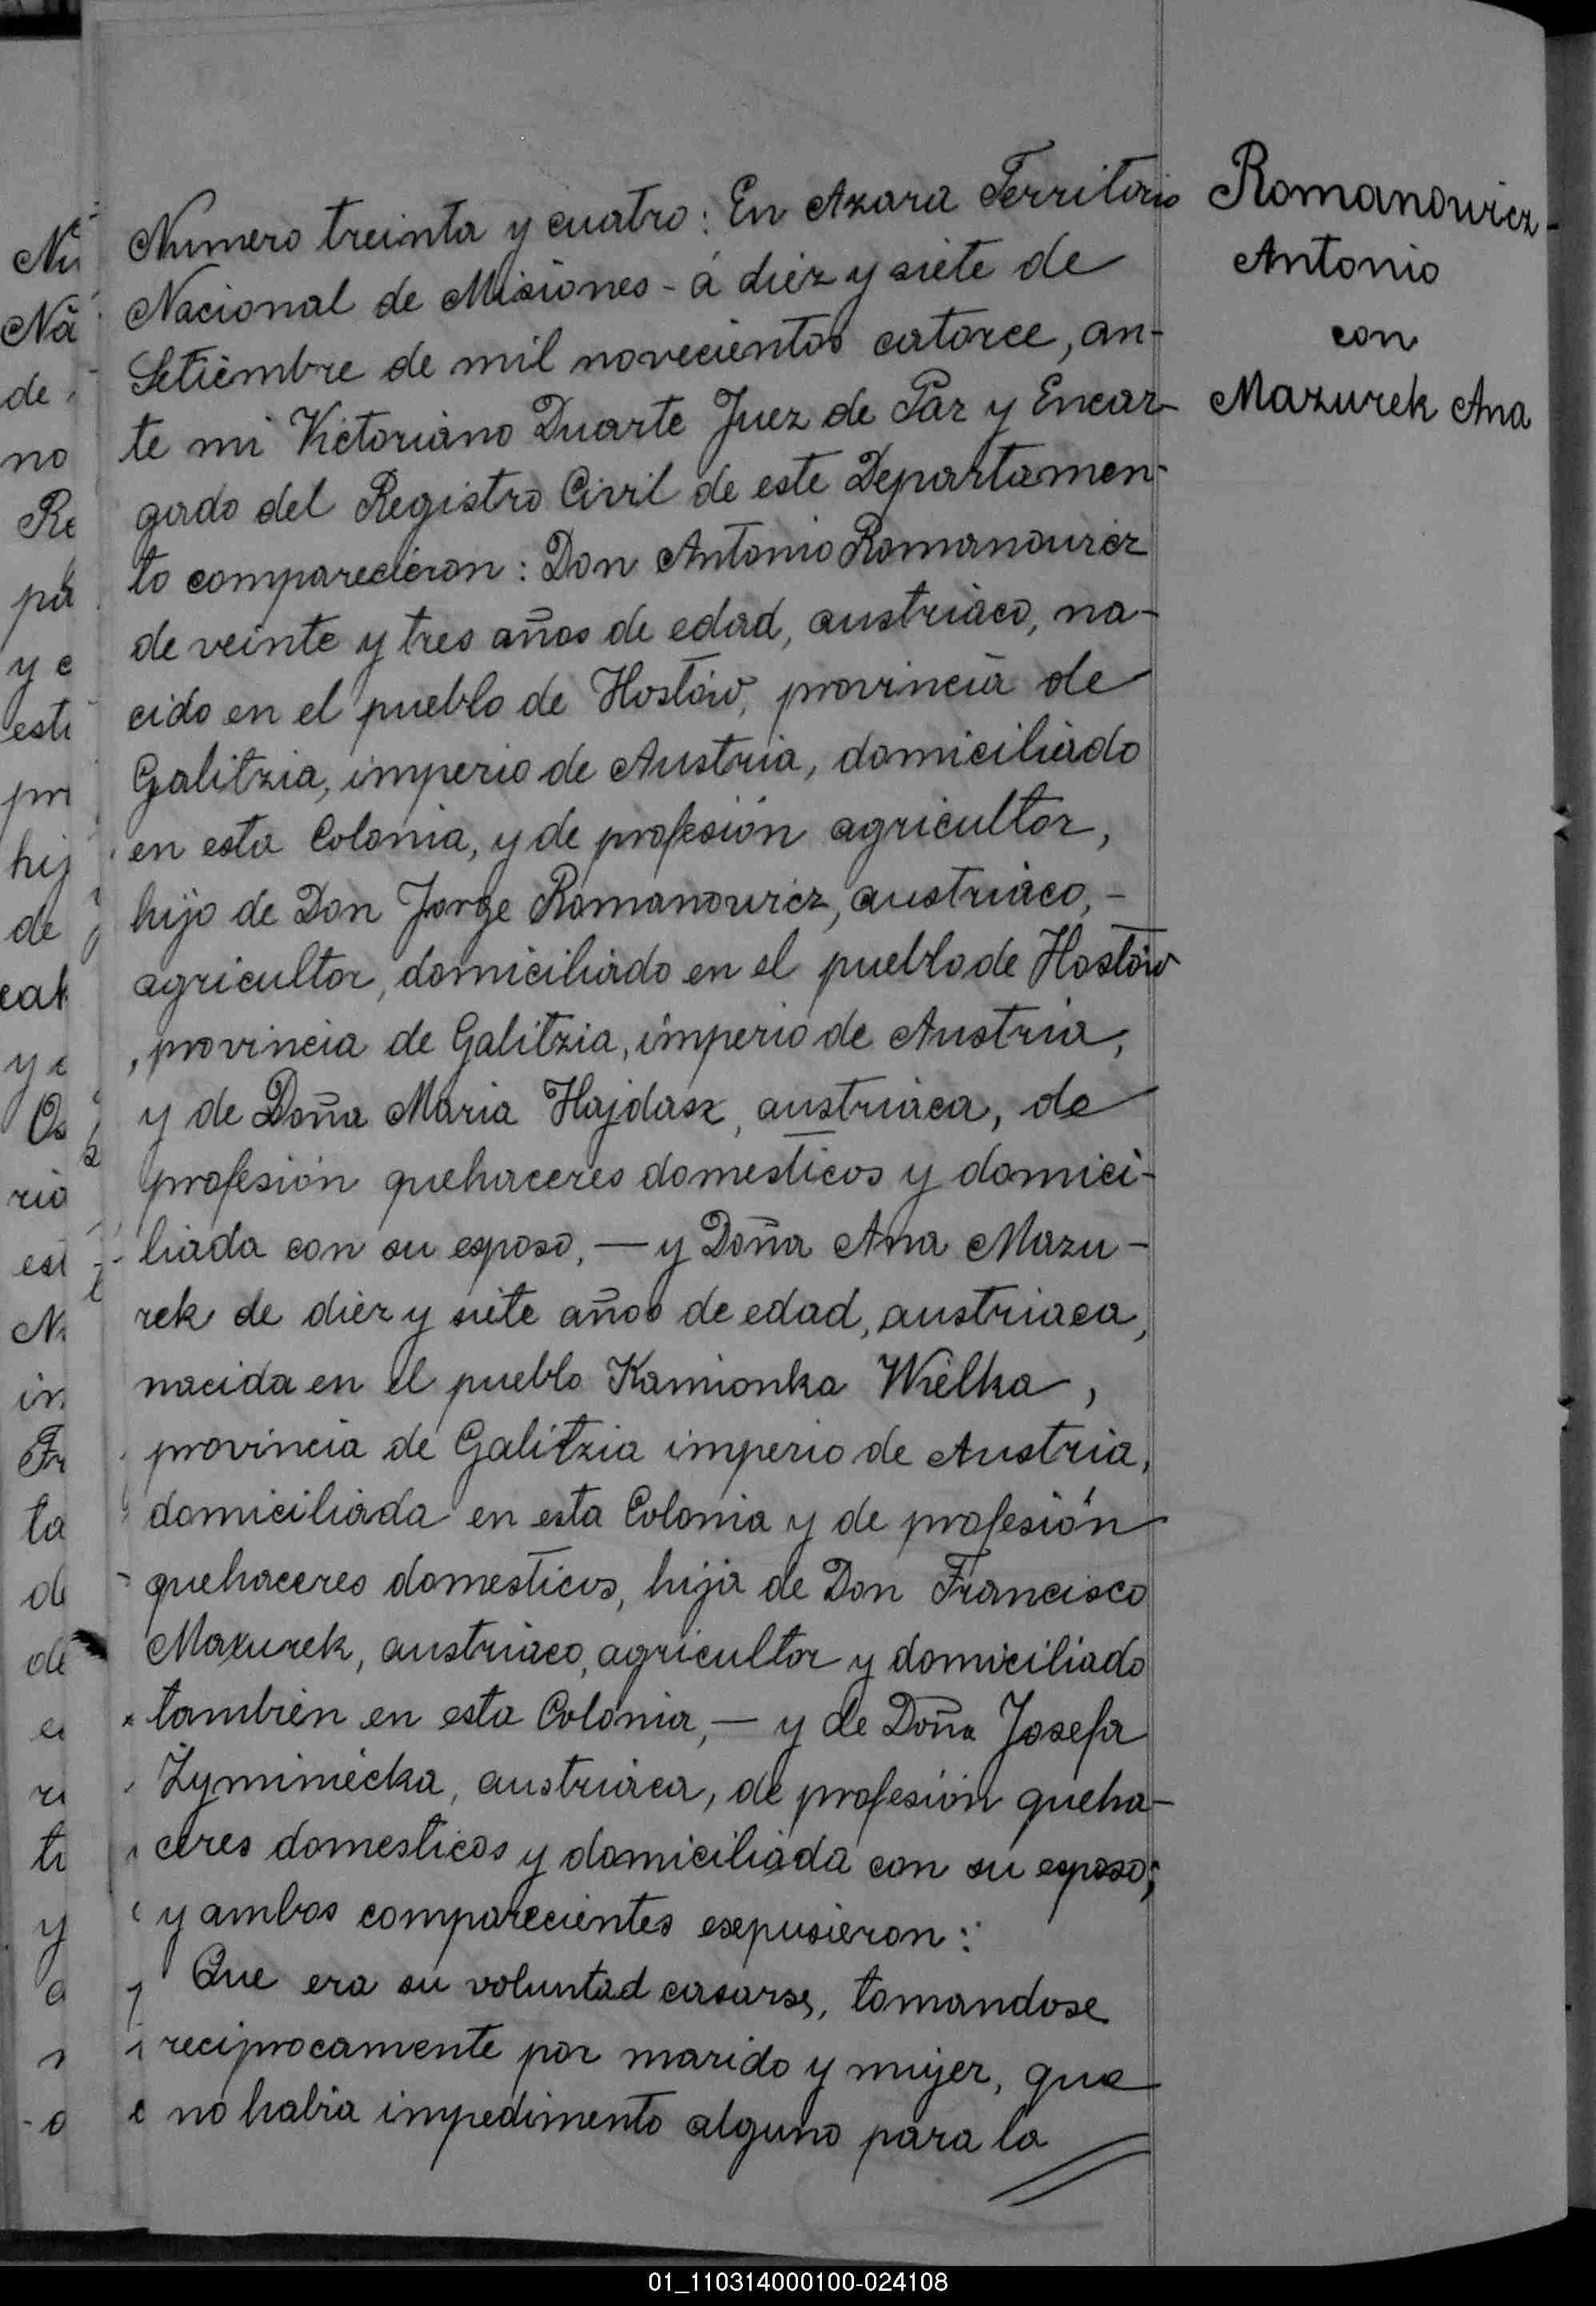 Numero treinta y cuatro: En Azara Territorio
Nacional de Misiones - á diéz y siete de
Setiembre de mil novecientos catorce, an-
te mi Victoriano Duarte Juez de Paz y Encar-
gado del Registro Civil de este Departamen-
to comparecieron: Don Antonio Romanowicz
de veinte y tres años de edad, austriaco, na-
cido en el pueblo de Hostów, provincia de
Galitzia, imperio de Austria, domiciliado
en esta Colonia, y de profesión agricultor,
hijo de Don Jorge Romanowicz, austriaco, -
agricultor, domiciliado en el pueblo de Hostów
, provincia de Galitzia, imperio de Austria,
y de Doña Maria Hajdasz, austriaca, de
profesión quehaceres domesticos y domici-
liada con su esposo, — y Doña Ana Mazu-
rek de diez y siete años de edad, austriaca,
nacida en el pueblo Kamionka Wielka,
provincia de Galitzia imperio de Austria,
domiciliada en esta Colonia y de profesión
quehaceres domesticos, hija de Don Francisco
Mazurek, austriaco, agricultor y domiciliado
también en esta Colonia, — y de Doña Josefa
Zyminiecka, austriaca, de profesión queha-
ceres domesticos y domiciliada con su esposo;
y ambos comparecientes esepusieron:
Que era su voluntad casarse, tomandose
reciprocamente por marido y mujer, que
no habia impedimento alguno para la
Romanowicz-
Antonio
con
Mazurek Ana
01_110314000100-024108